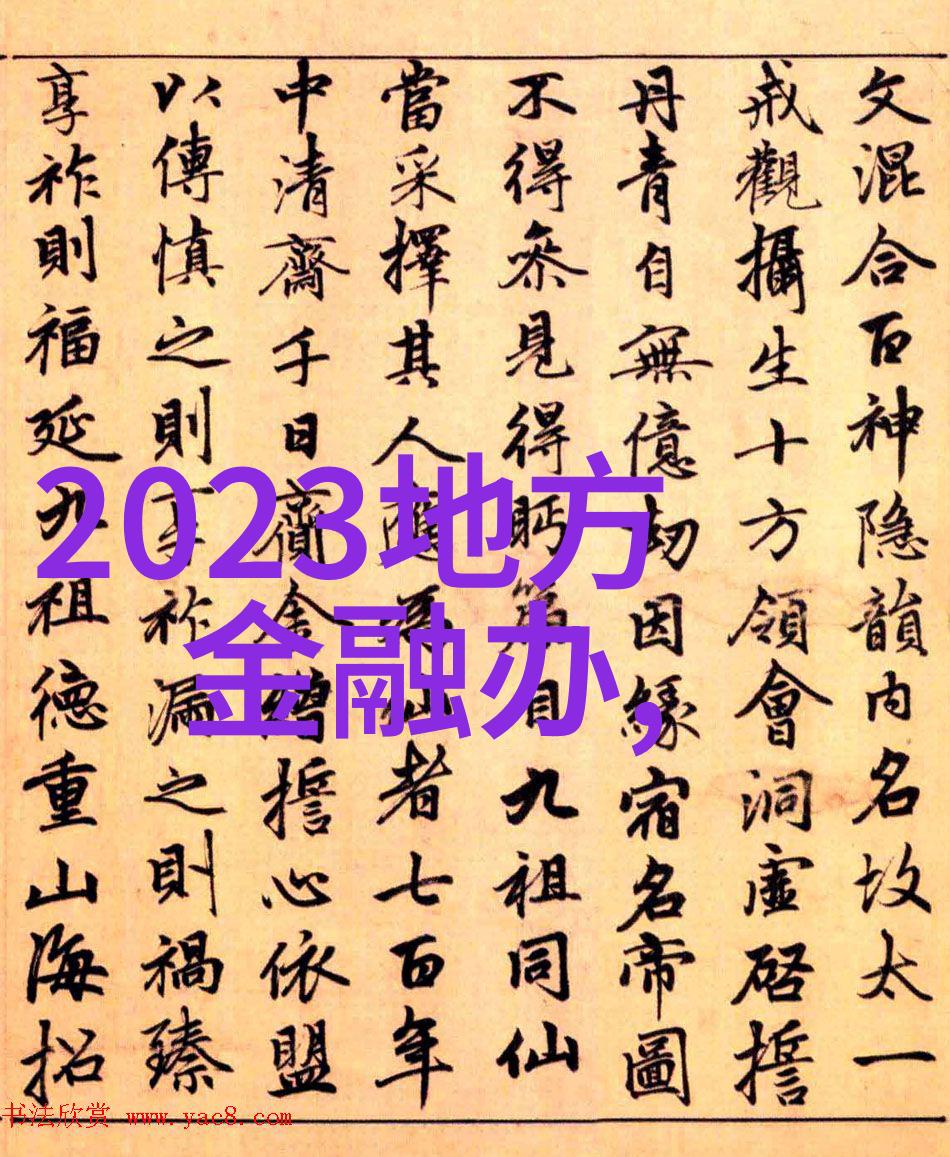 2023地方
金融办,
文混合百神隐韻内名故太一
戒觀攝生十方領會洞虛啓誓
丹青自無億劫因緣宿名帝圖
不得叅見得眄篇目九祖同仙
當采擇其人應爲仙者七百年
中清齋千日齎金誓心依盟
以傳慎之則享祚漏之則禍臻
享祚則福延九祖德重山海招
书法欣赏 www.yac8.com